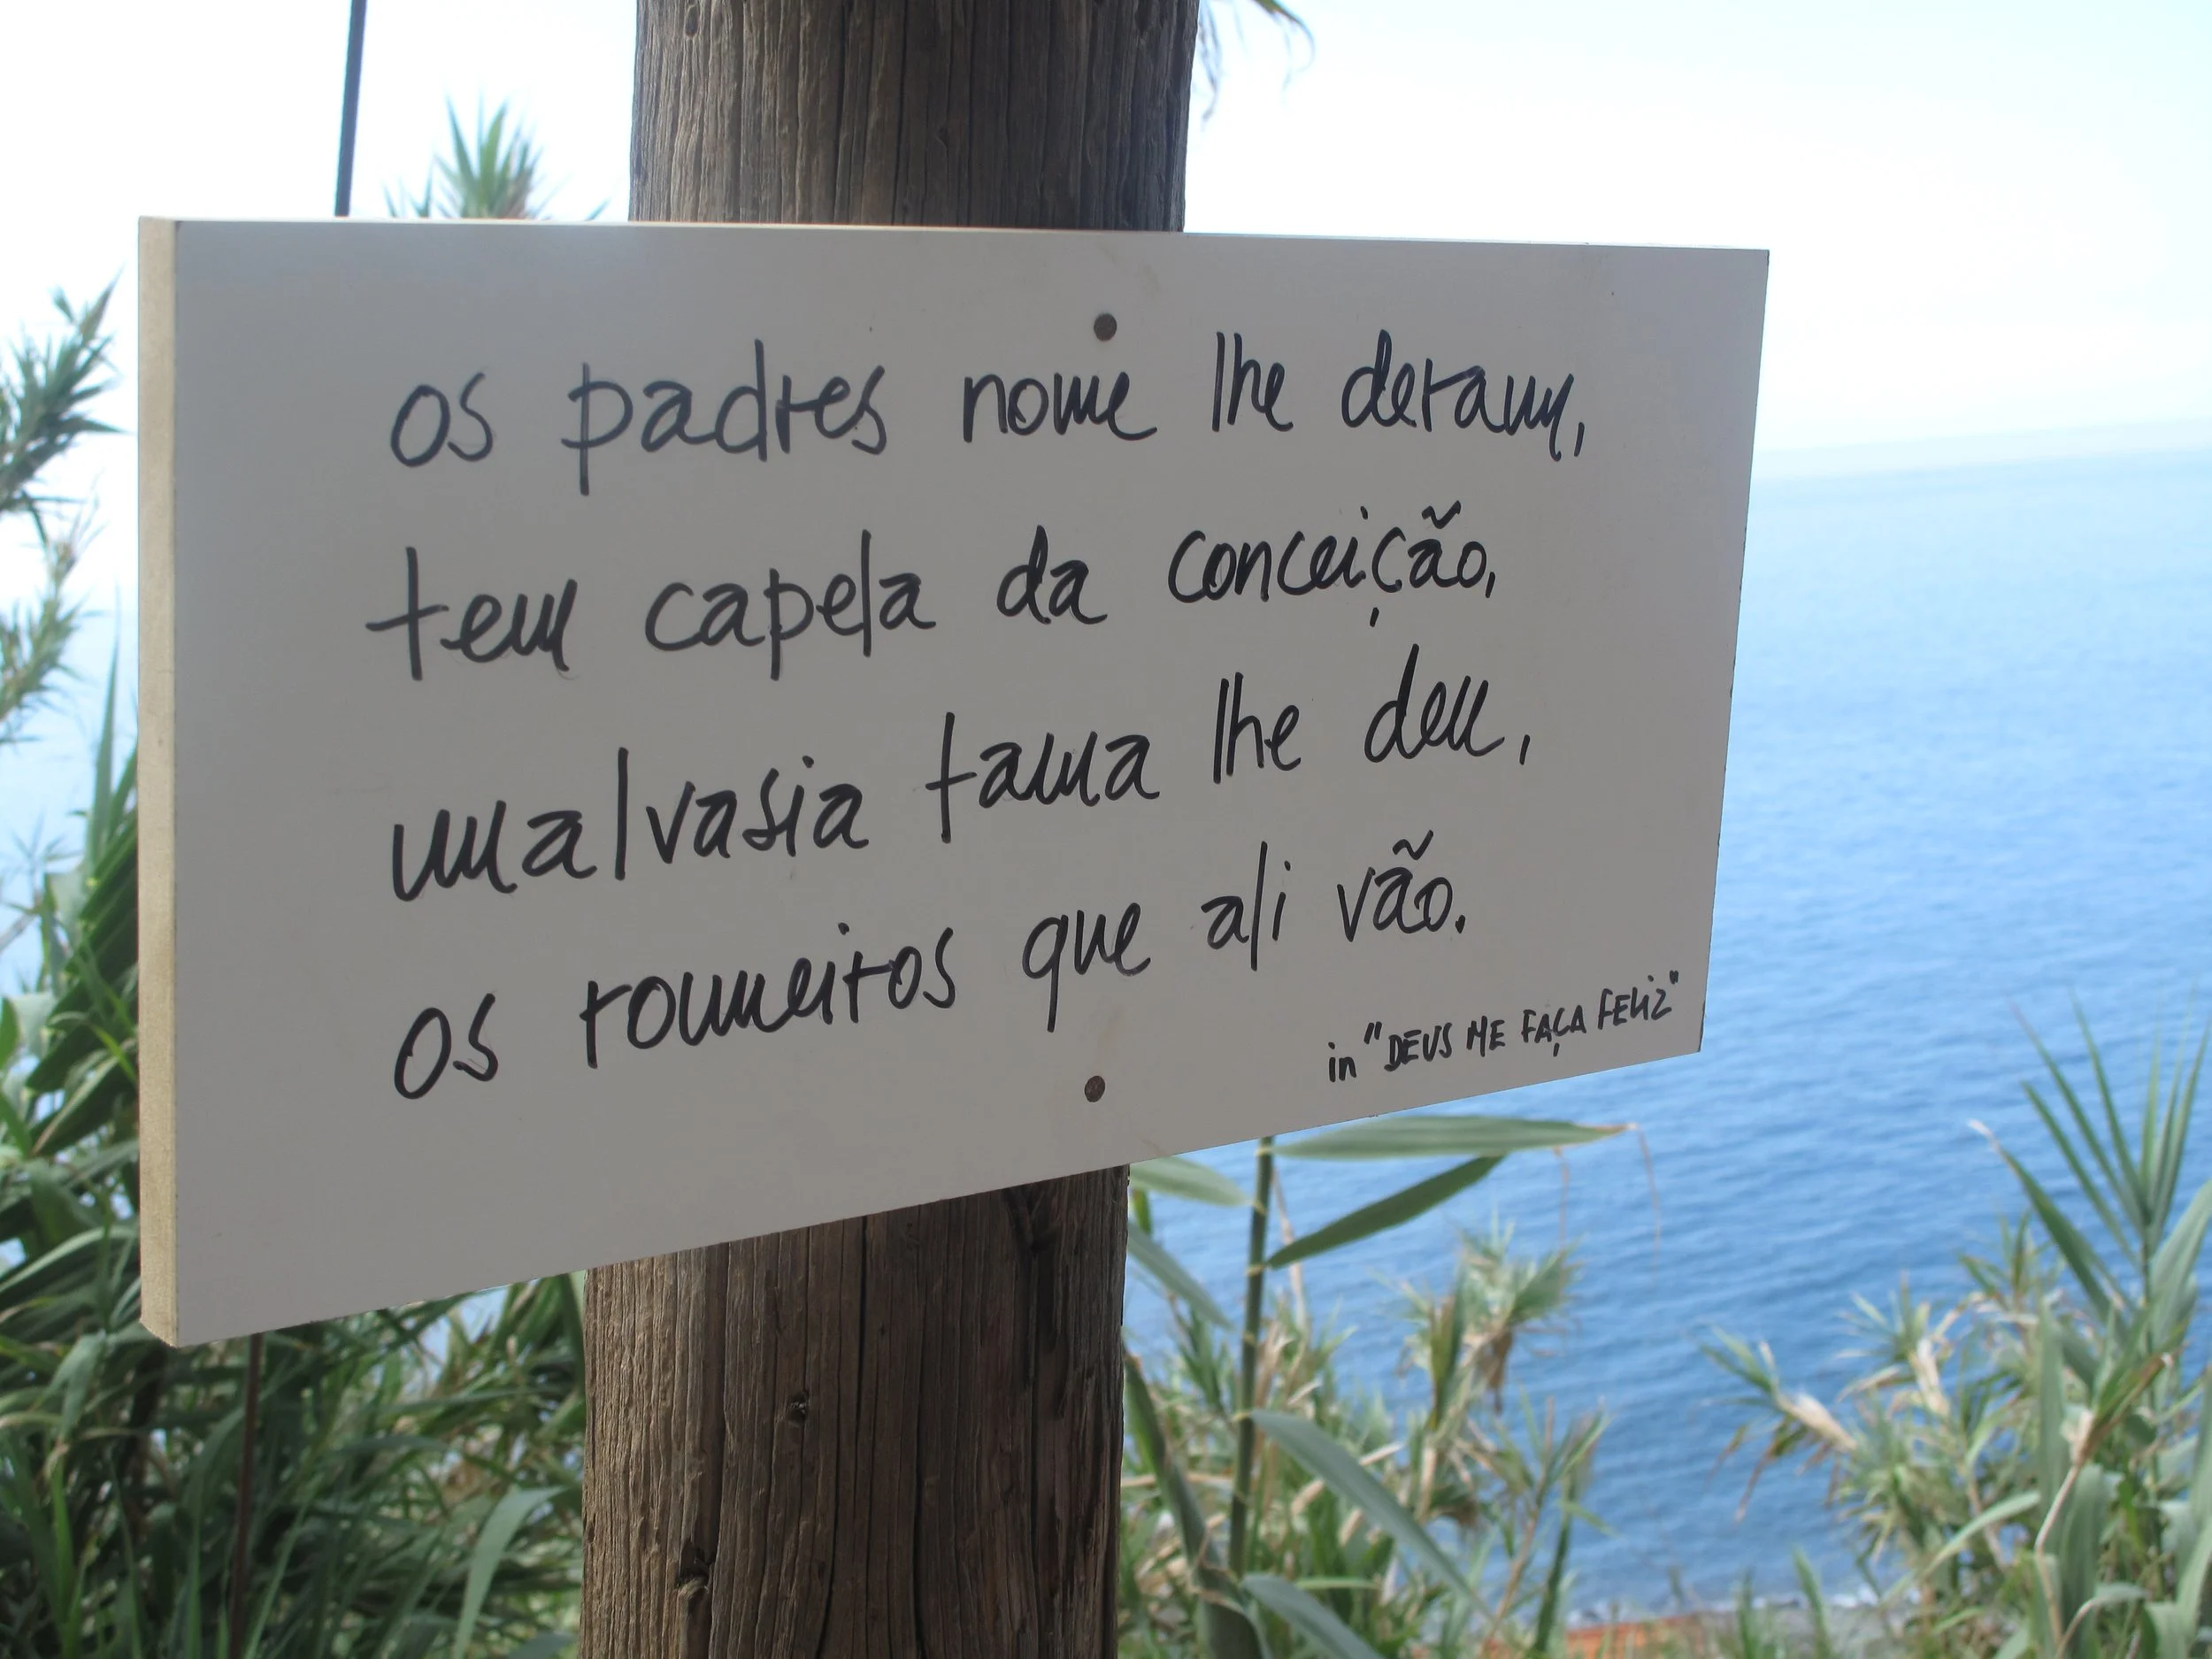 os padres nome lhe deram,
tem capela da conceição,
malvasia fama lhe deu,
os romeiros que ali vão.
in "DEUS ME FAÇA FELIZ"